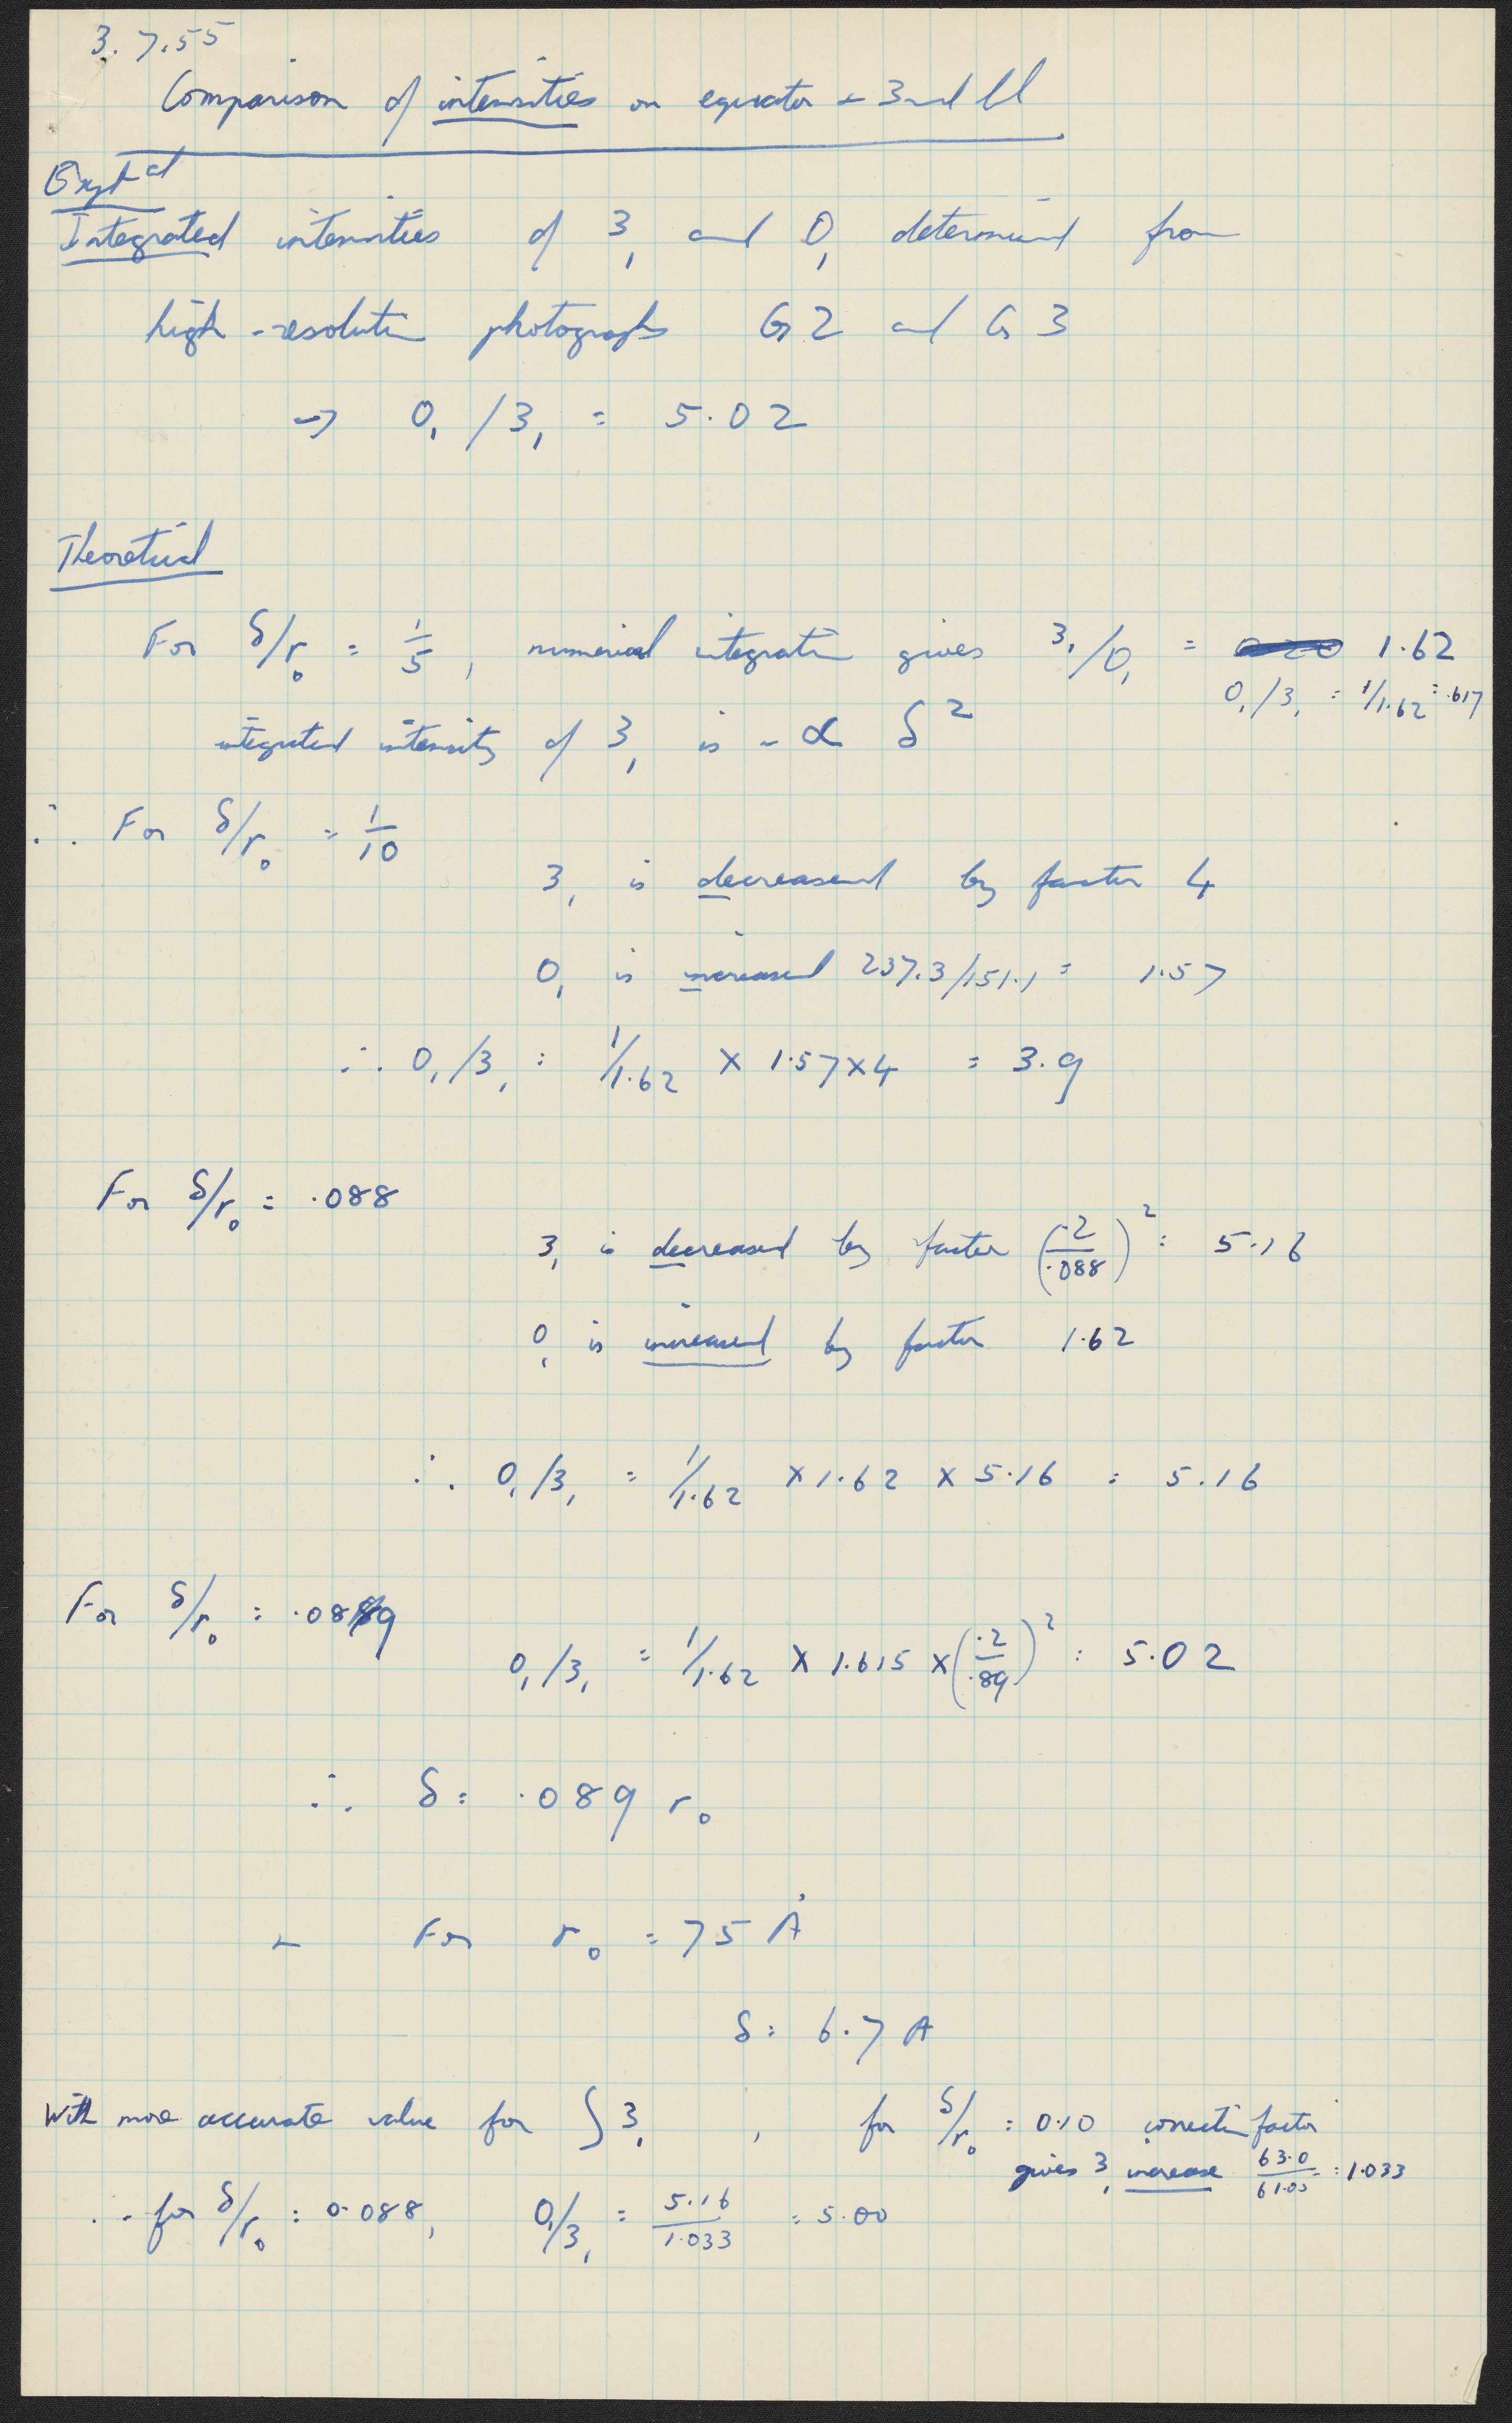 3.7.55
Comparison of intensities on equator + 3rd ll
Exptal
Integrated intensities of 3₁ and 0₁ determined from
high-resolution photographs G2 and G3
→ 0₁/3₁ = 5.02
Theoretical
For δ/r₀ = 1/5, numerical integration gives 3₁/0₁ = 1.62
0₁/3₁ = 1/1.62 = .617
integrated intensity of 3₁ is ~ ∝ δ²
∴ For δ/r₀ = 1/10
3₁ is decreased by factor 4
0₁ is increased 237.3/151.1 = 1.57
∴ 0₁/3₁ = 1/1.62 × 1.57 × 4 = 3.9
For δ/r₀ = .088
3₁ is decreased by factor (.2/.088)² = 5.16
0₁ is increased by factor 1.62
∴ 0₁/3₁ = 1/1.62 × 1.62 × 5.16 = 5.16
For δ/r₀ = .089
0₁/3₁ = 1/1.62 × 1.615 × (.2/.89)² = 5.02
∴ δ = .089 r₀
+ For r₀ = 75 Å
δ = 6.7 A
With more accurate value for ∫3₁, for δ/r₀ = 0.10 correction factor
gives 3₁ increase 63.0/61.05 = 1.033
∴ for δ/r₀ = 0.088, 0₁/3₁ = 5.16/1.033 = 5.00